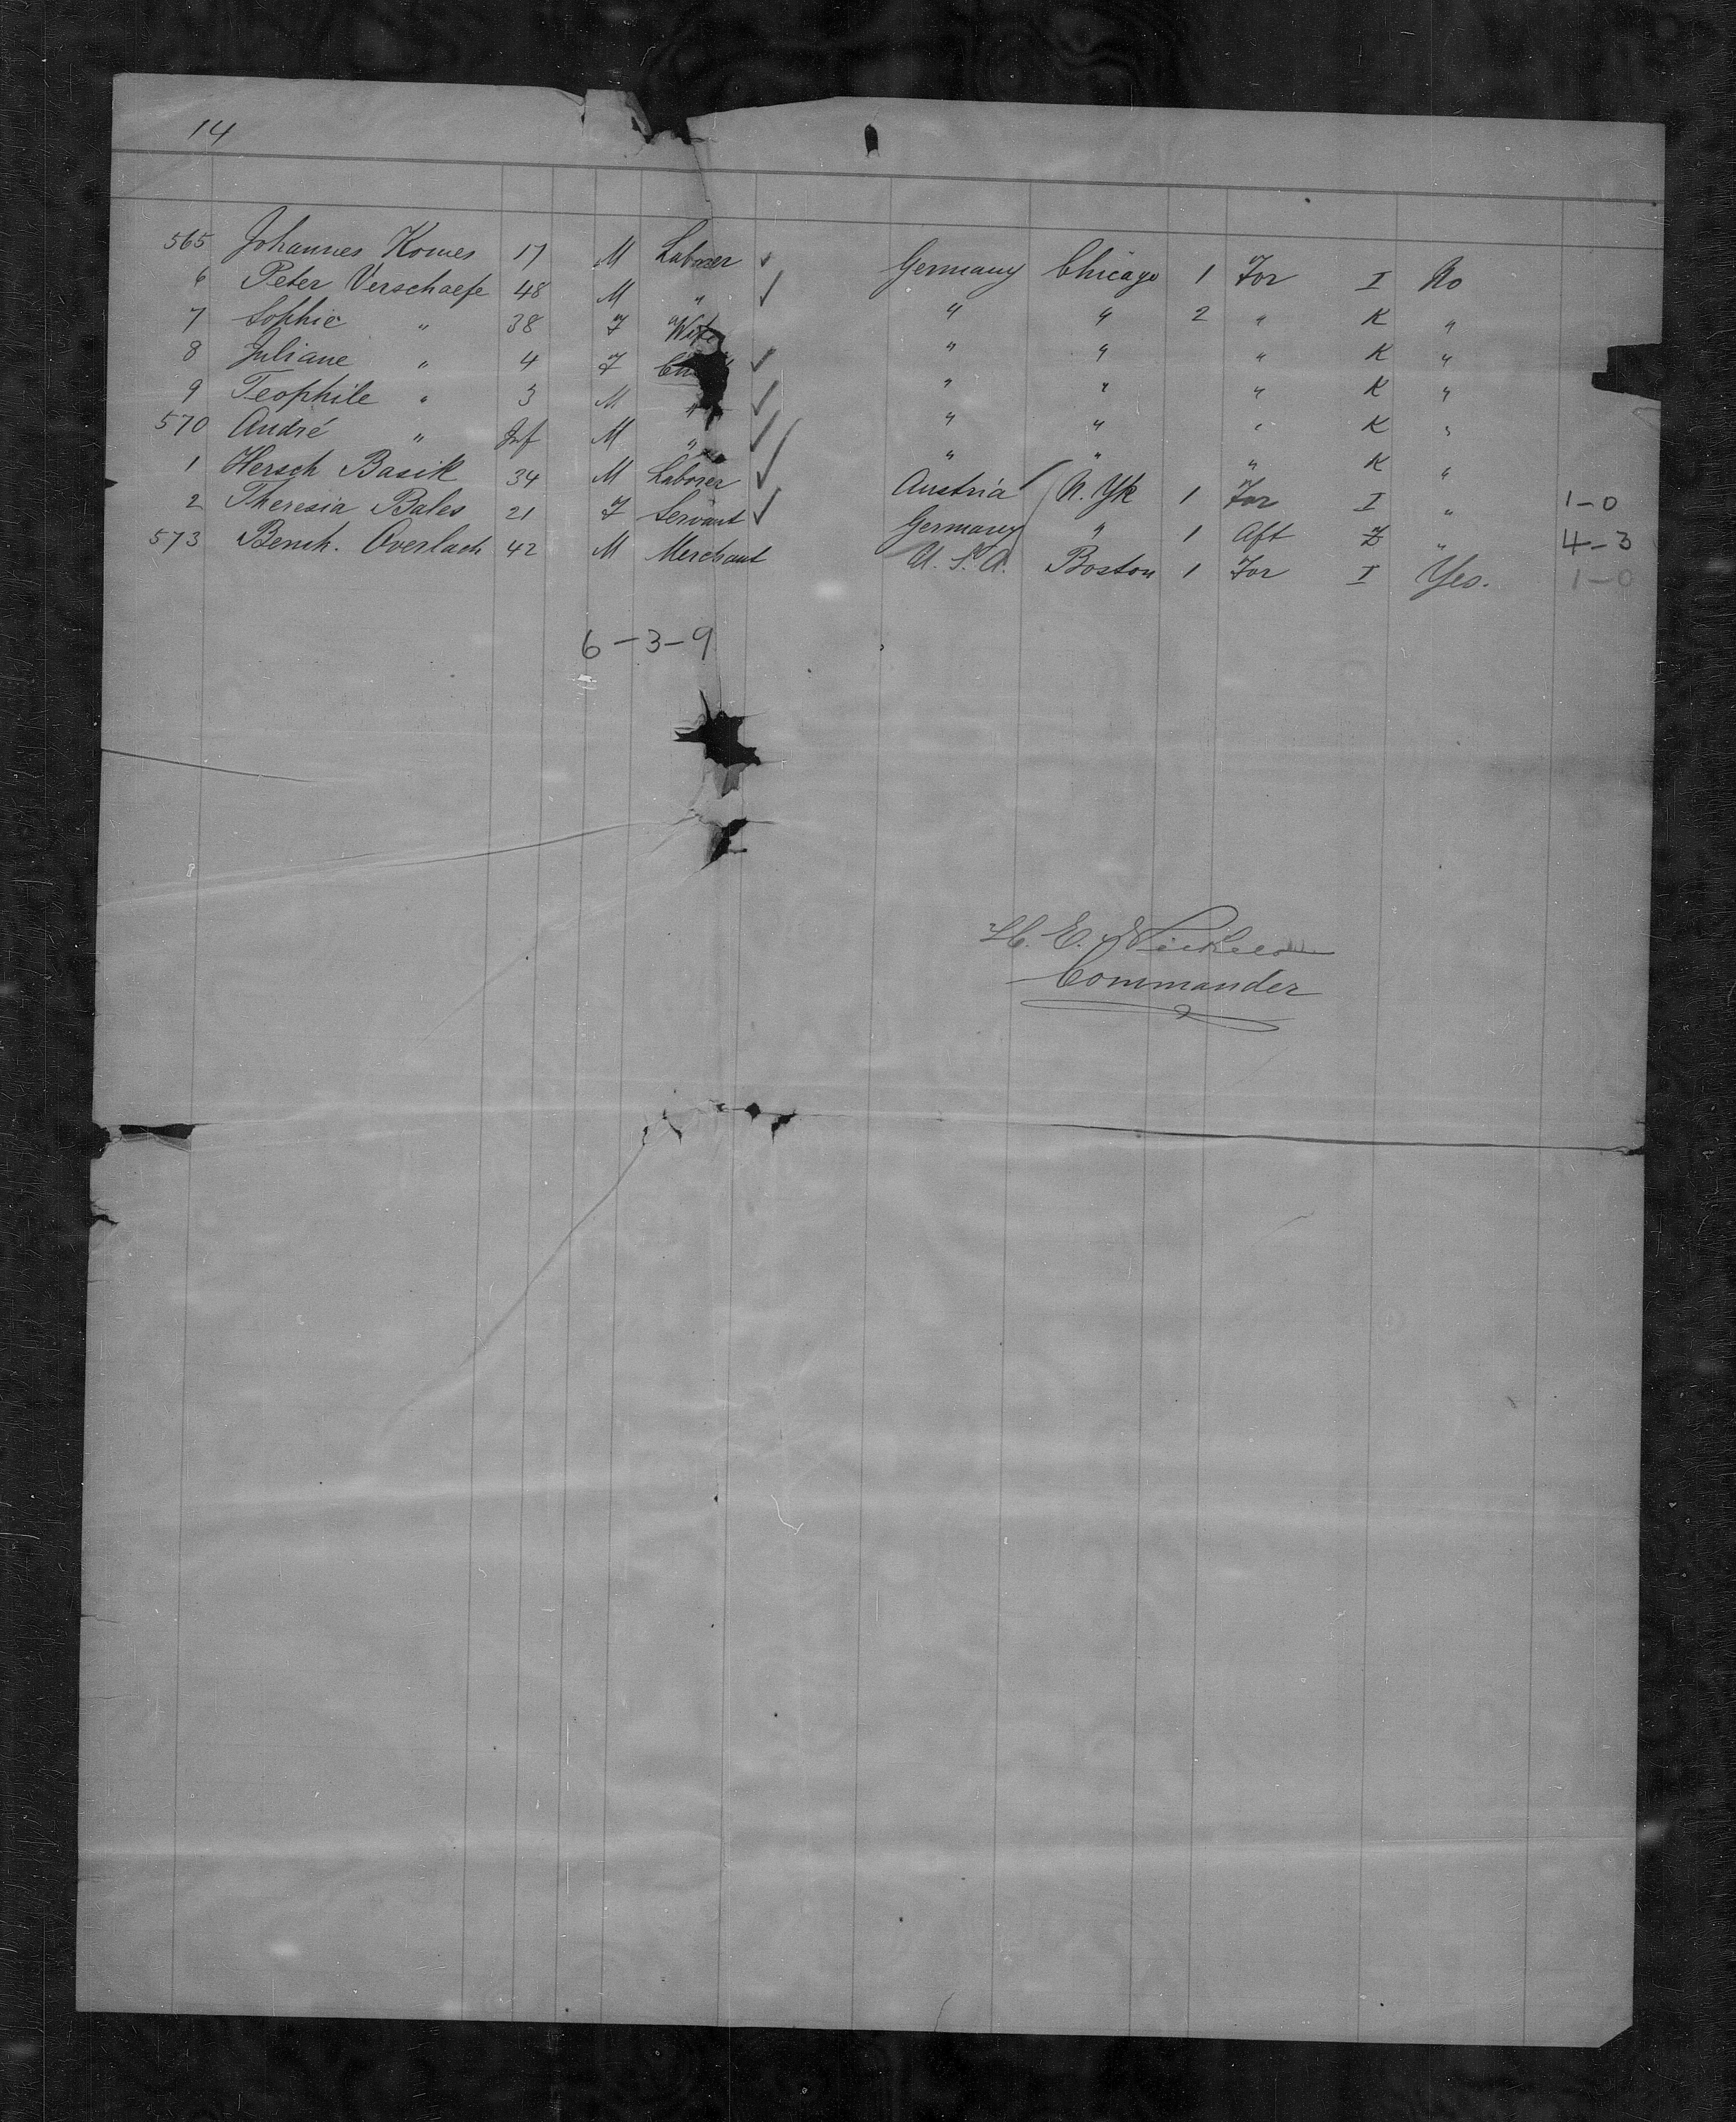 14
565 Johannes Komes 17 M Laborer ✓ Germany Chicago 1 For I No
6 Peter Verschaefe 48 M " ✓ " " 2 " K "
7 Sophie " 38 F Wife " " " K "
8 Juliane " 4 F ✓ " " " K "
9 Teophile " 3 M " ✓ " " " K "
570 André " Inf M " ✓ " " " K "
1 Hersch Basik 34 M Laborer ✓ Austria N. Yk 1 For I " 1-0
2 Theresia Bales 21 F Servant ✓ Germany " 1 Aft Z " 4-3
573 Overlach 42 M Merchant U. S. A. Boston 1 For I Yes. 1-0
6-3-9
H. E. Nickels
Commander